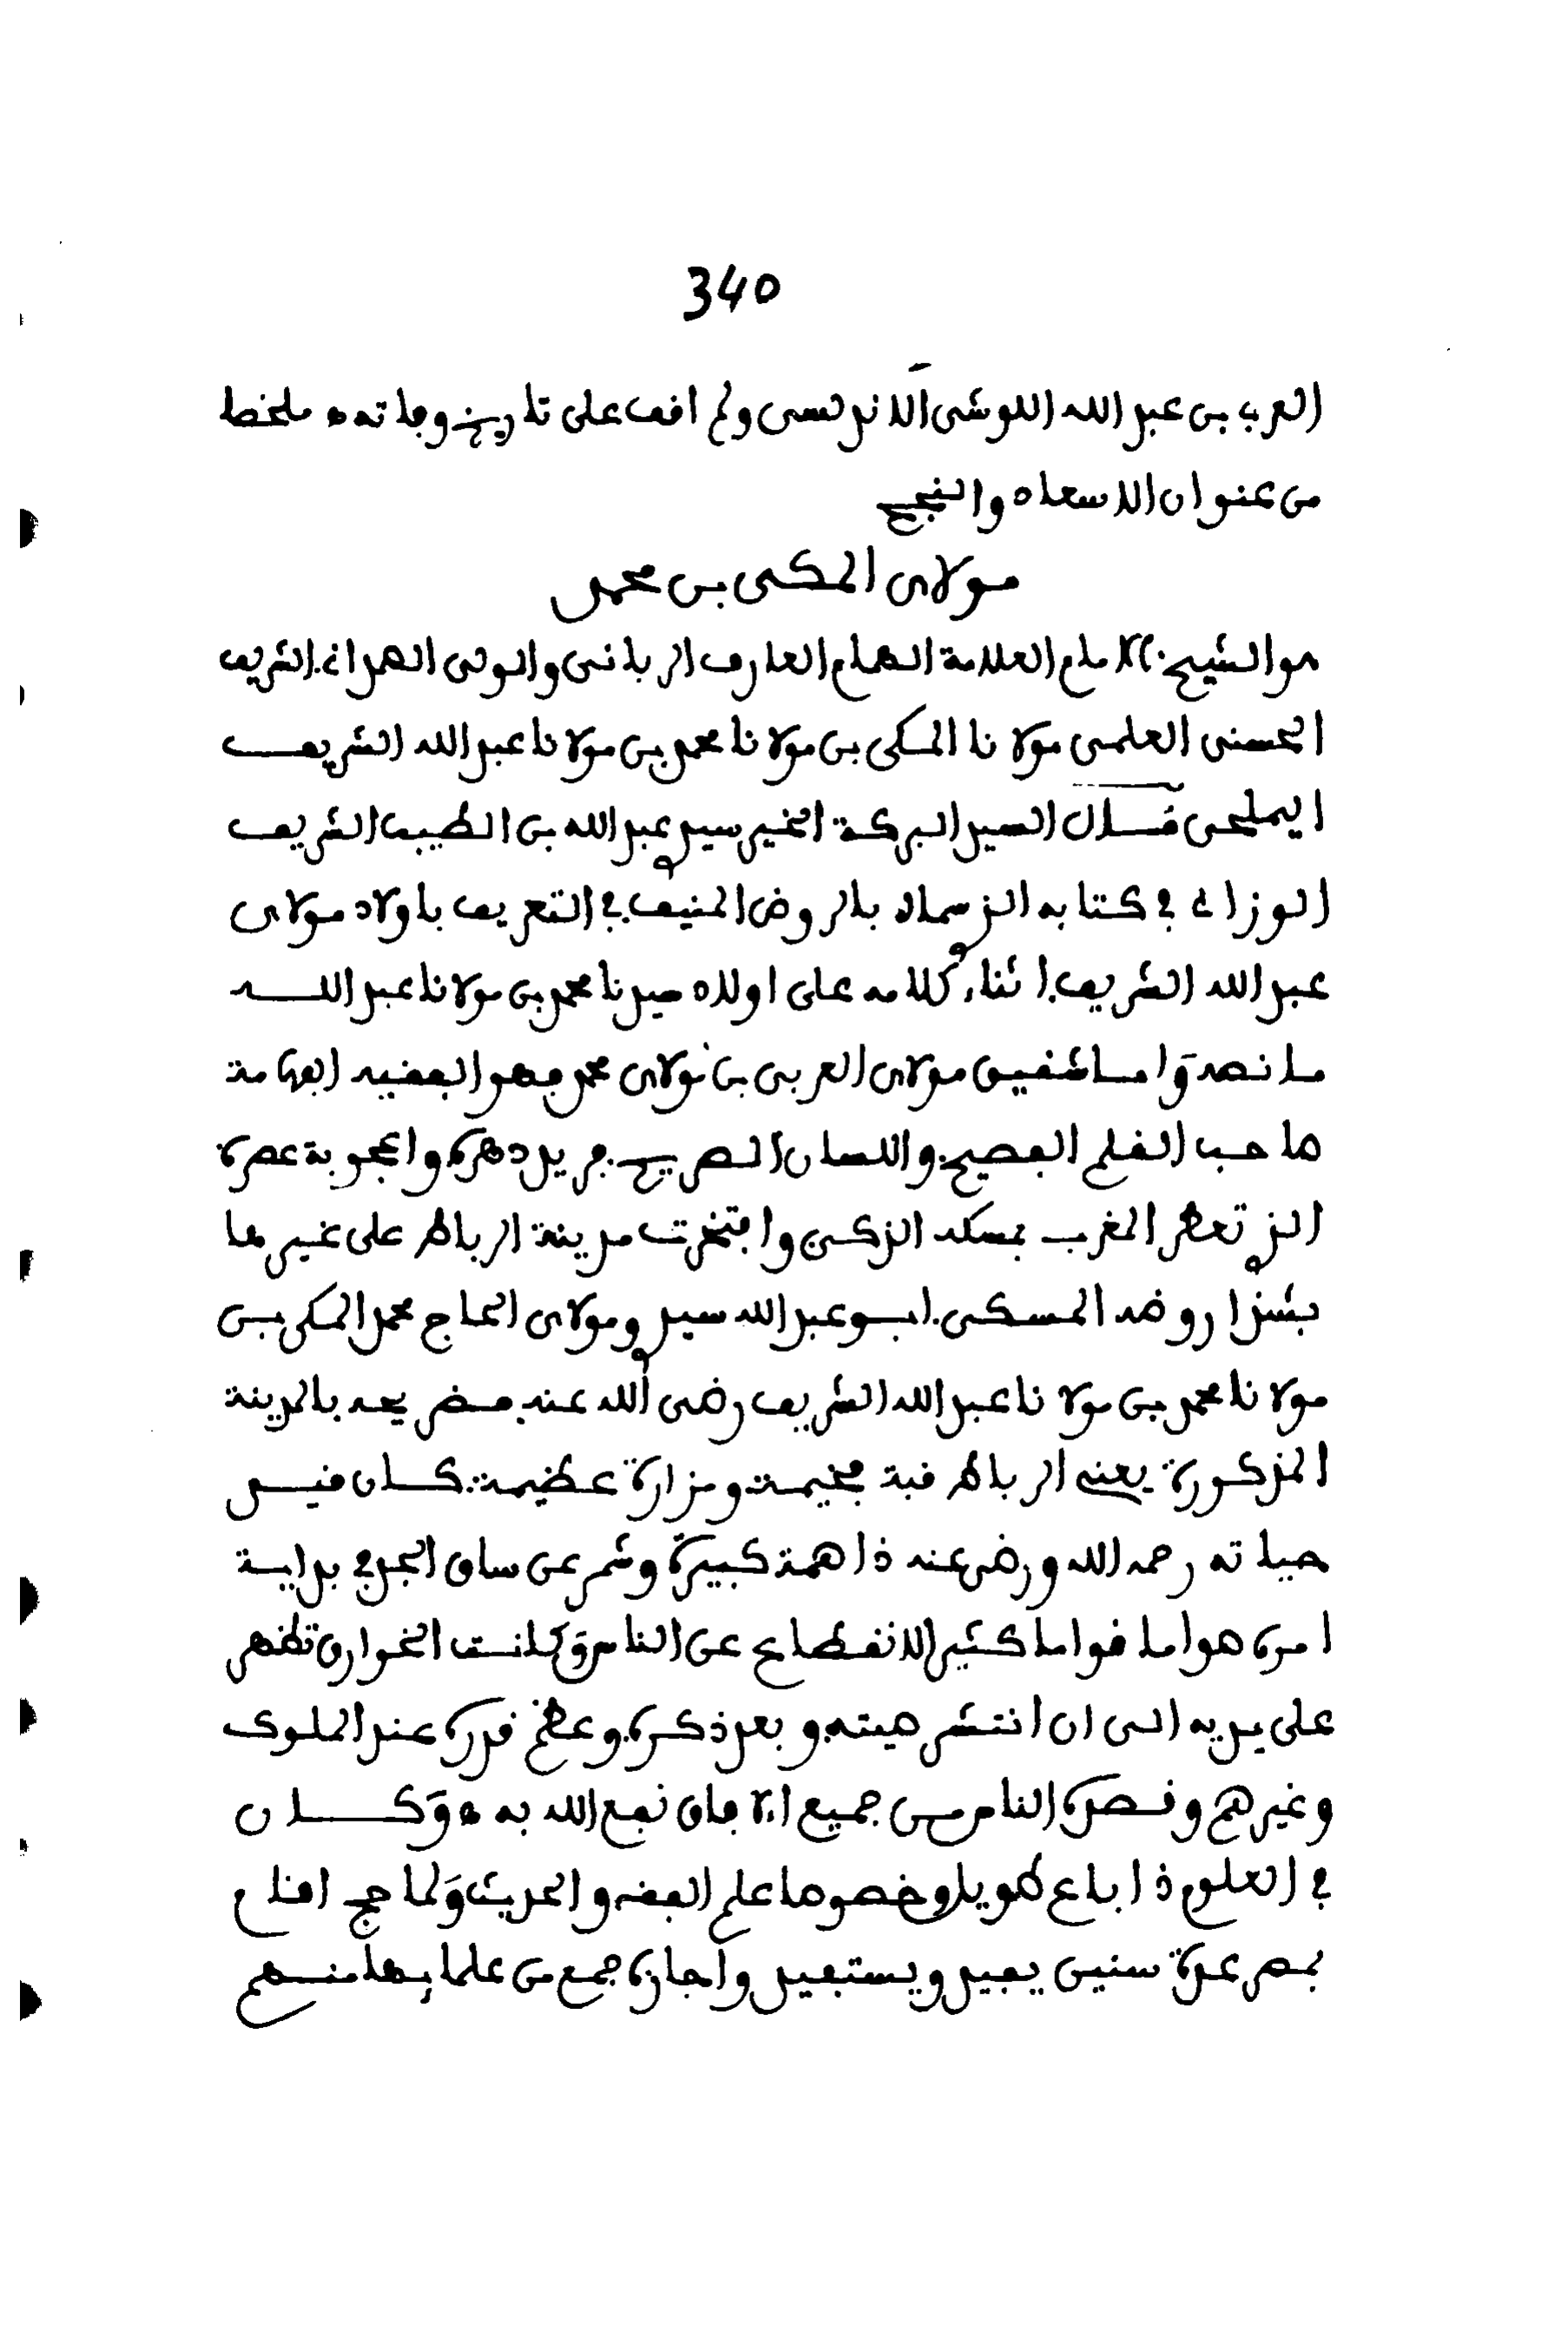 340
العرب بن عبد الله اللوشى الاندلسى ولم اقف على تاريخ وفاته ه ملخصا
من عنوان الاسعاد والنجح
مولاى المكى بن محمد
هو الشيخ الامام العلامة الهمام العارف الربانى والولى الصمدانى الشريف
الحسنى العلمى مولانا المكى بن مولانا محمد بن مولانا عبد الله الشريف
اليملحى قال السيد البركة الخير سيدى عبد الله بن الطيب الشريف
الوزانى فى كتابه الذى سماه بالروض المنيف فى التعريف باولاد مولاى
عبد الله الشريف اثناء كلامه على اولاد سيدنا محمد بن مولانا عبد الله
ما نصه واما شقيق مولاى العربى بن مولاى محمد فهو الفقيه الفهامة
صاحب القلم الفصيح واللسان الصريح فريد دهره واعجوبة عصره
الذى تعطر المغرب بمسكه الزكى وافتخرت مدينة الرباط على غيرها
بشذا روضه المسكى ابو عبد الله سيدى ومولاى الحاج محمد المكى بن
مولانا محمد بن مولانا عبد الله الشريف رضى الله عنه ضريحه بالمدينة
المذكورة يعنى الرباط قبة فخيمة ومزارة عظيمة كان قيس
حياته رحمه الله ورضى عنه ذا همة كبيرة وشمر عن ساق الجد فى بداية
امره صواما قواما كثير الانقطاع عن الناس وكانت الخوارق تظهر
على يديه الى ان انتشر صيته وبعد ذكره وعظم قدره عند الملوك
وغيرهم وقصده الناس من جميع الافاق نفع الله به ه وكان
فى العلوم ذا باع طويل وخصوصا علم الفقه والحديث ولما حج اقام
بمصر عدة سنين يفيد ويستفيد واجازه جمع من علمائها منهم